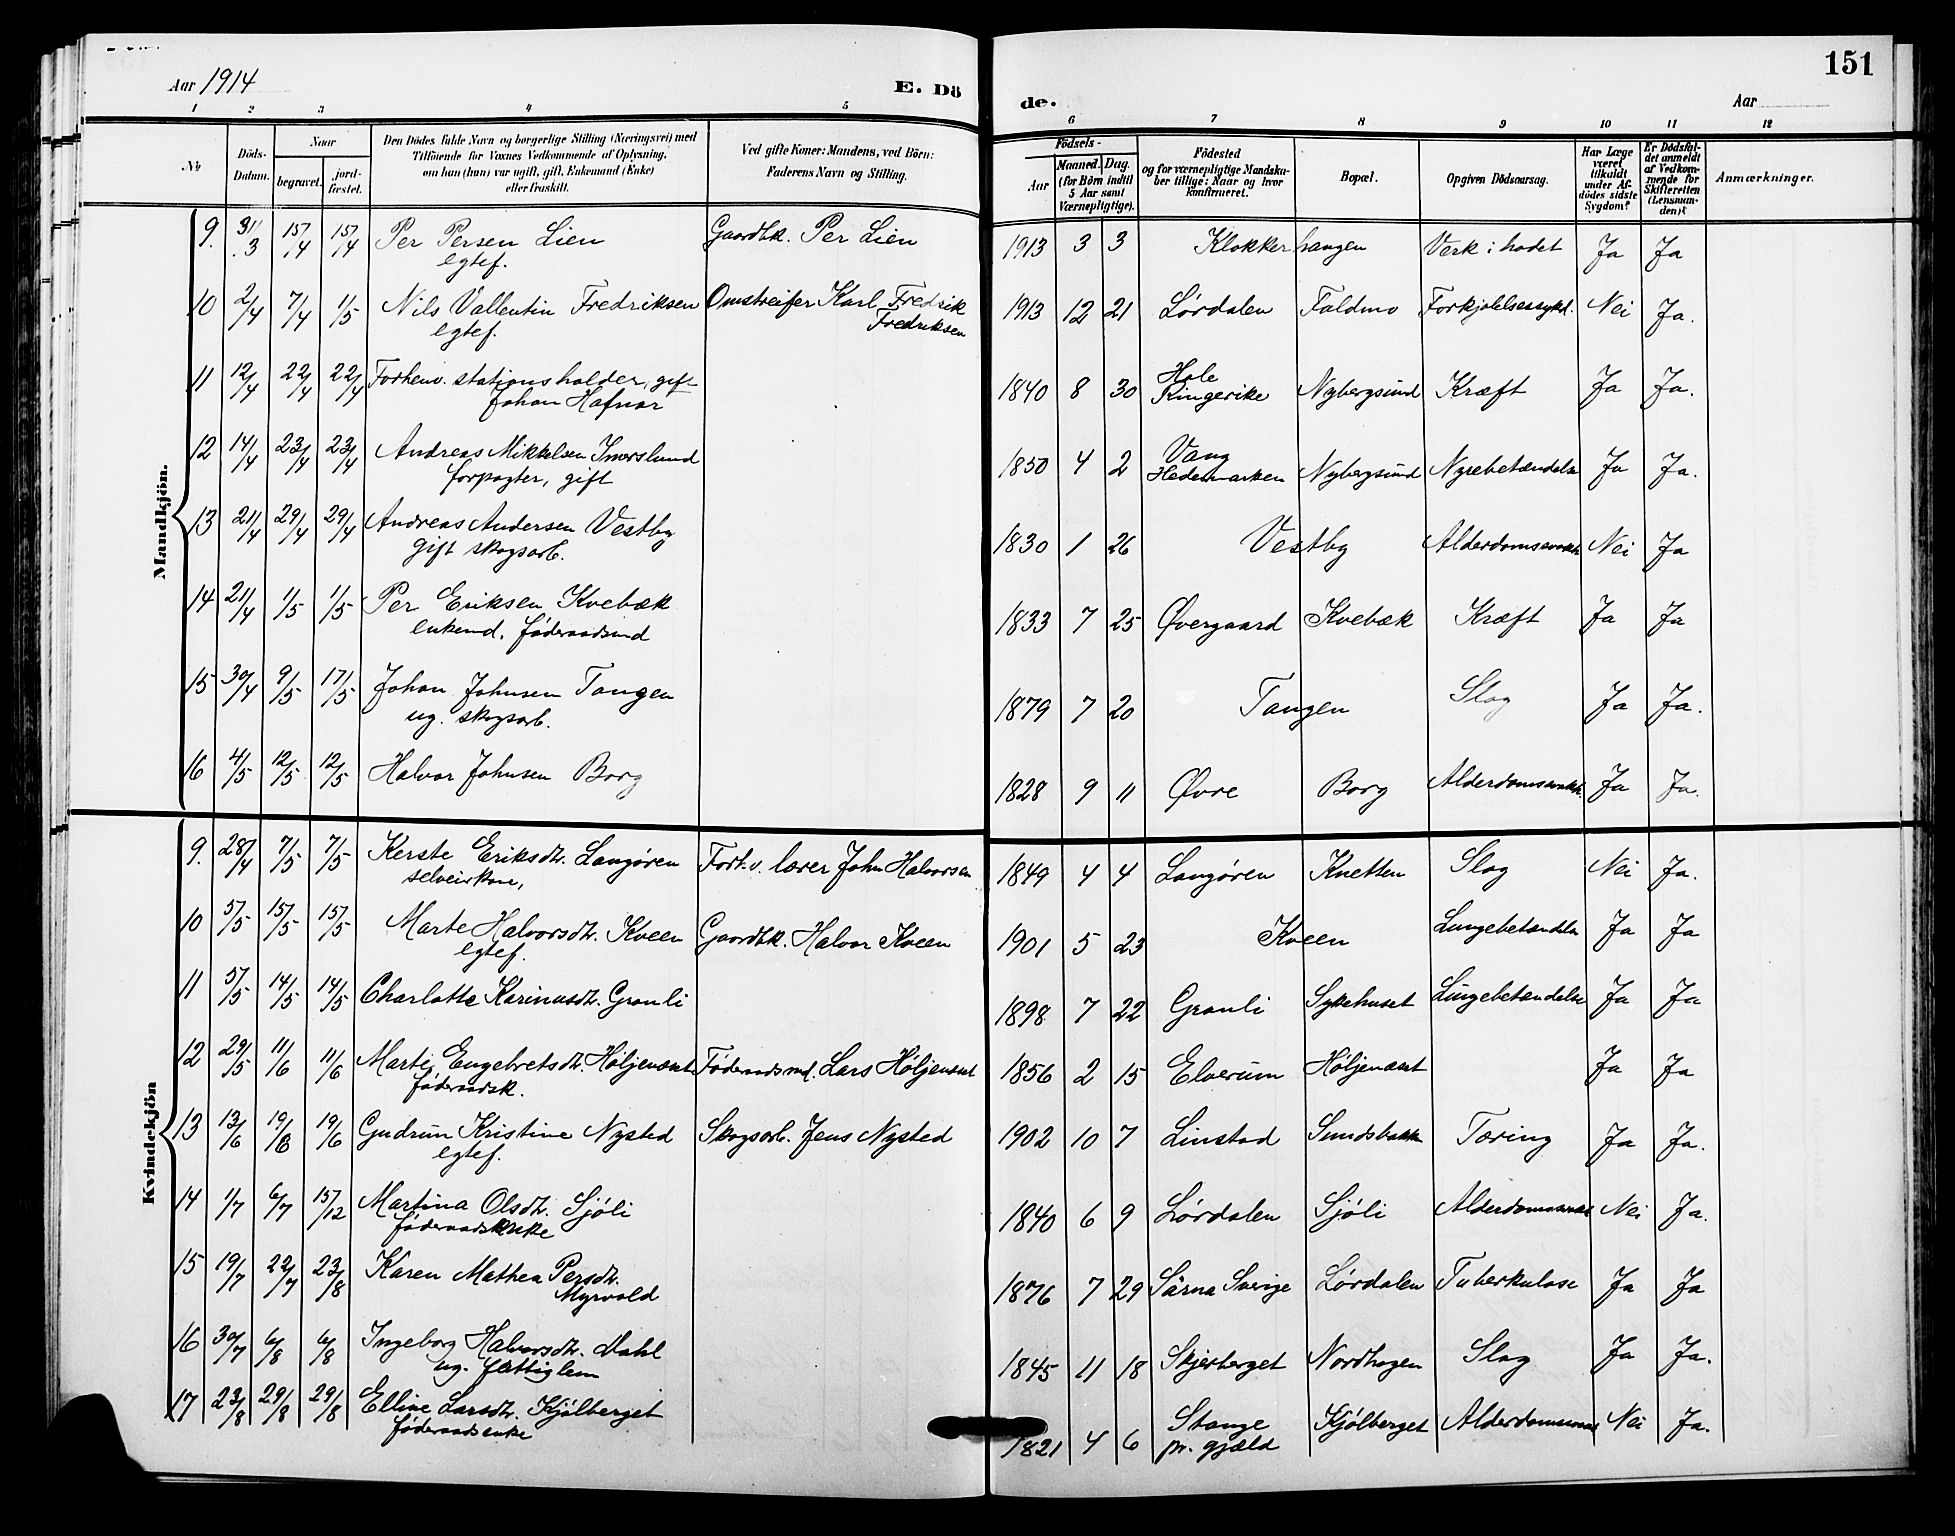 151
Aar 1914 E. Dö de. Aar
1 2 3 4 5 6 7 8 9 10 11 12
№ Döds-Datum. Naar begravet. jord-fæstet. Den Dödes fulde Navn og borgerlige Stilling (Næringsvei) med Tilföiende for Voxnes Vedkommende af Oplysning, om han (hun) var ugift, gift, Enkemand (Enke) eller fraskilt. Ved gifte Koner: Mandens, ved Börn: Faderens Navn og Stilling. Födsels- Aar Maaned. Dag. (for Börn indtil 5 Aar samt Værnepligtige). Födested og for værnepligtige Mandska-ber tillige: Naar og hvor konfirmeret. Bopæl. Opgiven Dödsaarsag. Har Læge været tilkaldt under Af-dödes sidste Sygdom? Er Dödsfal-det anmeldt af Vedkom-mende for Skifteretten (Lensman-den)? Anmærkninger.
Mandkjön.
9. 31/3 15/4 15/4 Per Persen Lien Gaardbk. Per Lien 1913 3 3 Klokkerhaugen Verk i hodet Ja Ja
egtef.
10 2/4 7/4 1/5 Nils Vallentin Fredriksen Omstreifer Karl Fredrik 1913 12 21 Lørdalen Faldmo Forkjølelsessykd. Nei Ja.
egtef. Fredriksen
11 12/4 22/4 22/4 Forhenv. stationsholder, gift 1840 8 30 Hole Ringerike Nybergsund Kræft Ja Ja.
Johan Hafnor
12 14/4 23/4 23/4 Andreas Mikkelsen Imerslund 1850 4 2 Vang Hedemarken Nybergsund Nyrebetændelse Ja Ja.
forpagter, gift
13 21/4 29/4 29/4 Andreas Andersen Vestby 1830 1 26 Vestby Nei Ja
gift skogsarb.
14 21/4 1/5 1/5 Per Eriksen Kvebæk 1833 7 25 Øvergaard Kvebæk Kræft Ja Ja
enkemd. føderaadsmd
15 30/4 9/5 17/5 Johan Johnsen Tangen 1879 7 20 Tangen Slag Ja Ja.
ug. skogsarb.
16 4/5 12/5 12/5 Halvor Johnsen Borg 1828 9 11 Øvre Borg Ja Ja.
Kvindekjön
9. 28/4 7/5 7/5 Kerste Eriksdtr. Langøren Forh.v. lærer John Halvorsen 1849 4 4 Langøren Knetten Slag Nei Ja.
selveirkone,
10 5/5 15/5 15/5 Marte Halvorsdtr. Kveen Gaardbk. Halvor Kveen 1901 5 23 Kveen Ja Ja
egtef.
11 5/5 14/5 14/5 Charlotte Karinusdtr. Granli 1898 7 22 Granli Sykehuset Lungebetændelse Ja Ja
12 29/5 11/6 11/6 Marte Engebretsdtr. Høljenæst Føderaadsmd. Lars Høljenæst 1856 2 15 Elverum Høljenæst Ja Ja
føderaadsk.
13 13/6 19/6 19/6 Gudrun Kristine Nysted Skogsarb. Jens Nysted 1902 10 7 Linstad Sundsbakken Tæring Ja Ja.
egtef.
14 1/7 6/7 15/12 Martina Olsdtr. Sjøli 1840 6 9 Lørdalen Sjøli Nei Ja.
føderaadsenke
15 19/7 22/7 23/8 Karen Mathea Persdtr. 1876 7 29 Särna Sverige Lørdalen Tuberkulose Ja Ja
Myrvold
16 30/7 6/8 6/8 Ingeborg Halvorsdtr. Dahl 1845 11 18 Skjerberget Nordhagen Slag Ja Ja.
ug. fattiglem
17 23/8 29/8 29/8 Elline Larsdtr. Kjølberget 1821 4 6 Stange pr. gjæld Kjølberget Nei Ja.
føderaadsenke